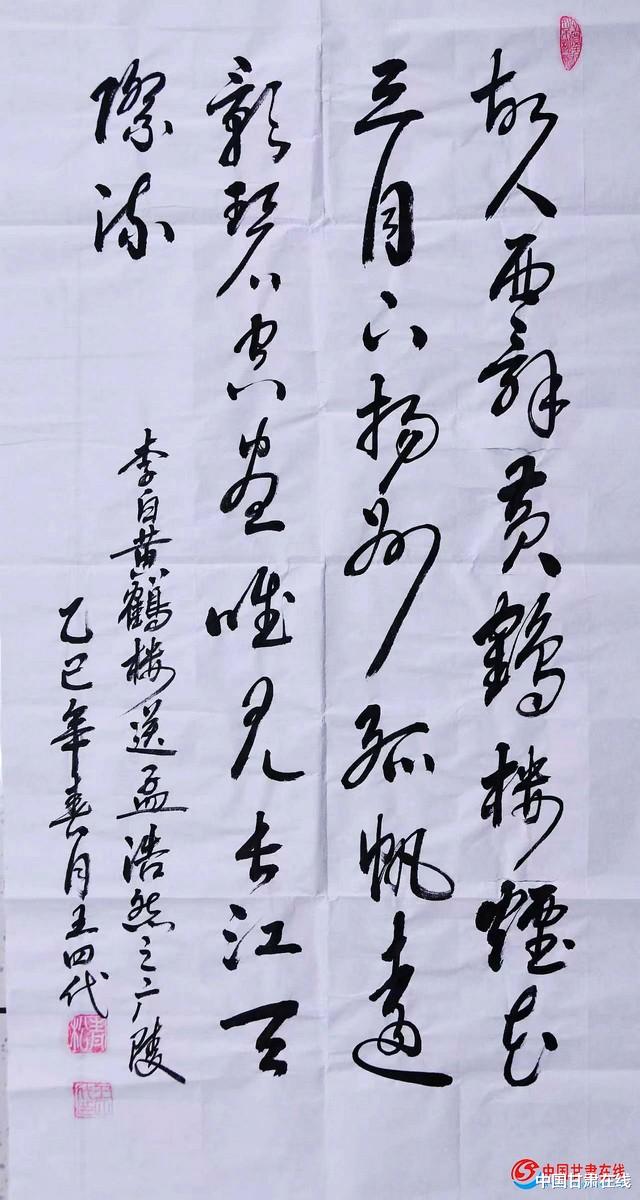 故人西辞黄鹤楼煙花
三月下扬州孤帆遠
影碧空盡唯见长江天
際流
李白黄鹤楼送孟浩然之广陵
乙巳年春月王四代
中国甘肃在线
中国甘肃在线